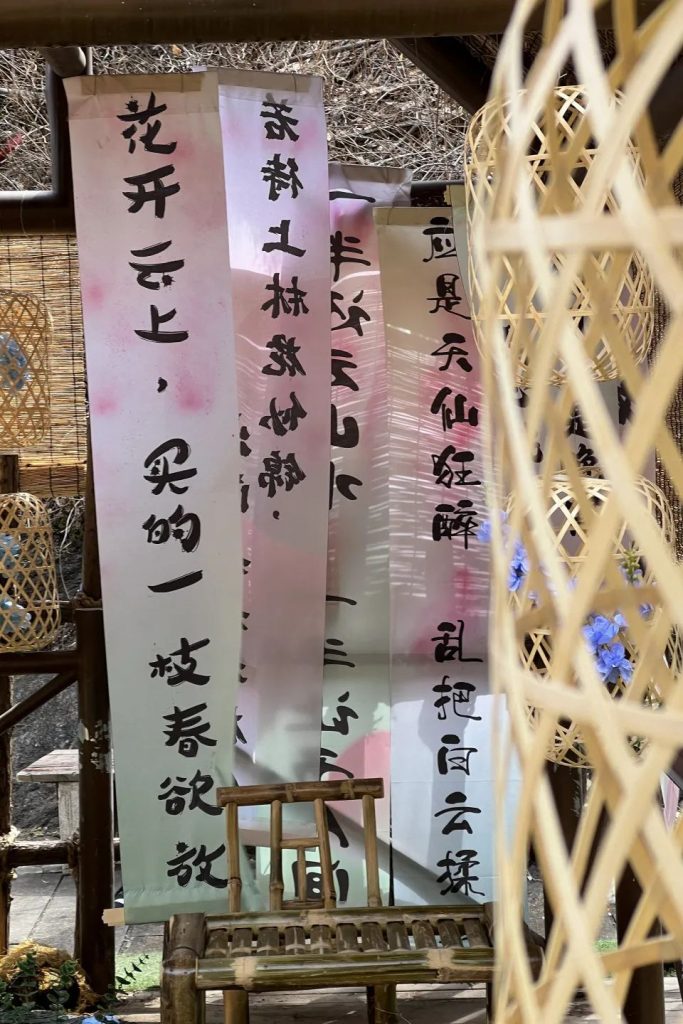 花开云上，买的一枝春欲放
若待上林花似锦，
一半 云山
应是天仙狂醉 乱把白云揉